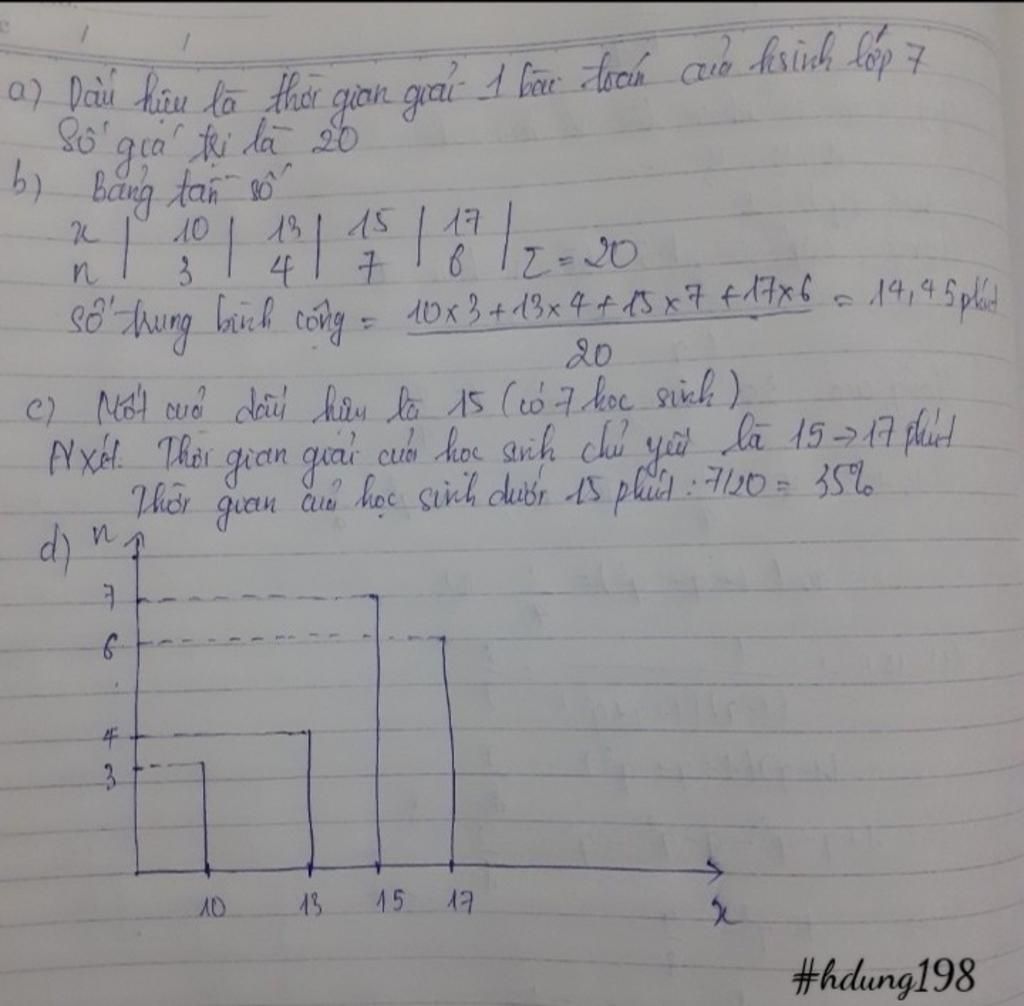 a) Dấu hiệu là thời gian giải 1 bài toán của hsinh lớp 7
Số giá trị là 20
b) Bảng tần số
x | 10 | 13 | 15 | 17 |
n | 3 | 4 | 7 | 6 | Σ = 20
Số trung bình cộng = 10x3+13x4+15x7+17x6 = 14,45 phút
20
c) Mốt của dấu hiệu là 15 (có 7 học sinh)
N xét. Thời gian giải của học sinh chủ yếu là 15→17 phút
Thời gian của học sinh dưới 15 phút: 7/20 = 35%
d) n
7
6
4
3
10 13 15 17 x
#hdung198